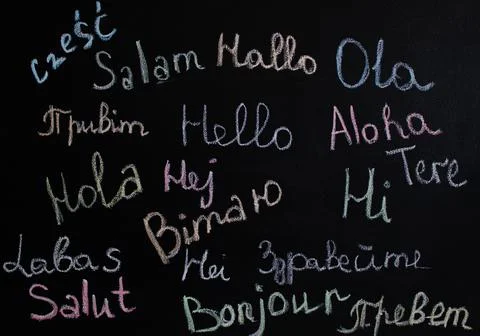 cześć
Salam Hallo Ola
Привіт Hello Aloha
Tere
Hola Hej Hi
Вітаю
Labas Hei Здравейте
Salut Bonjour Превет